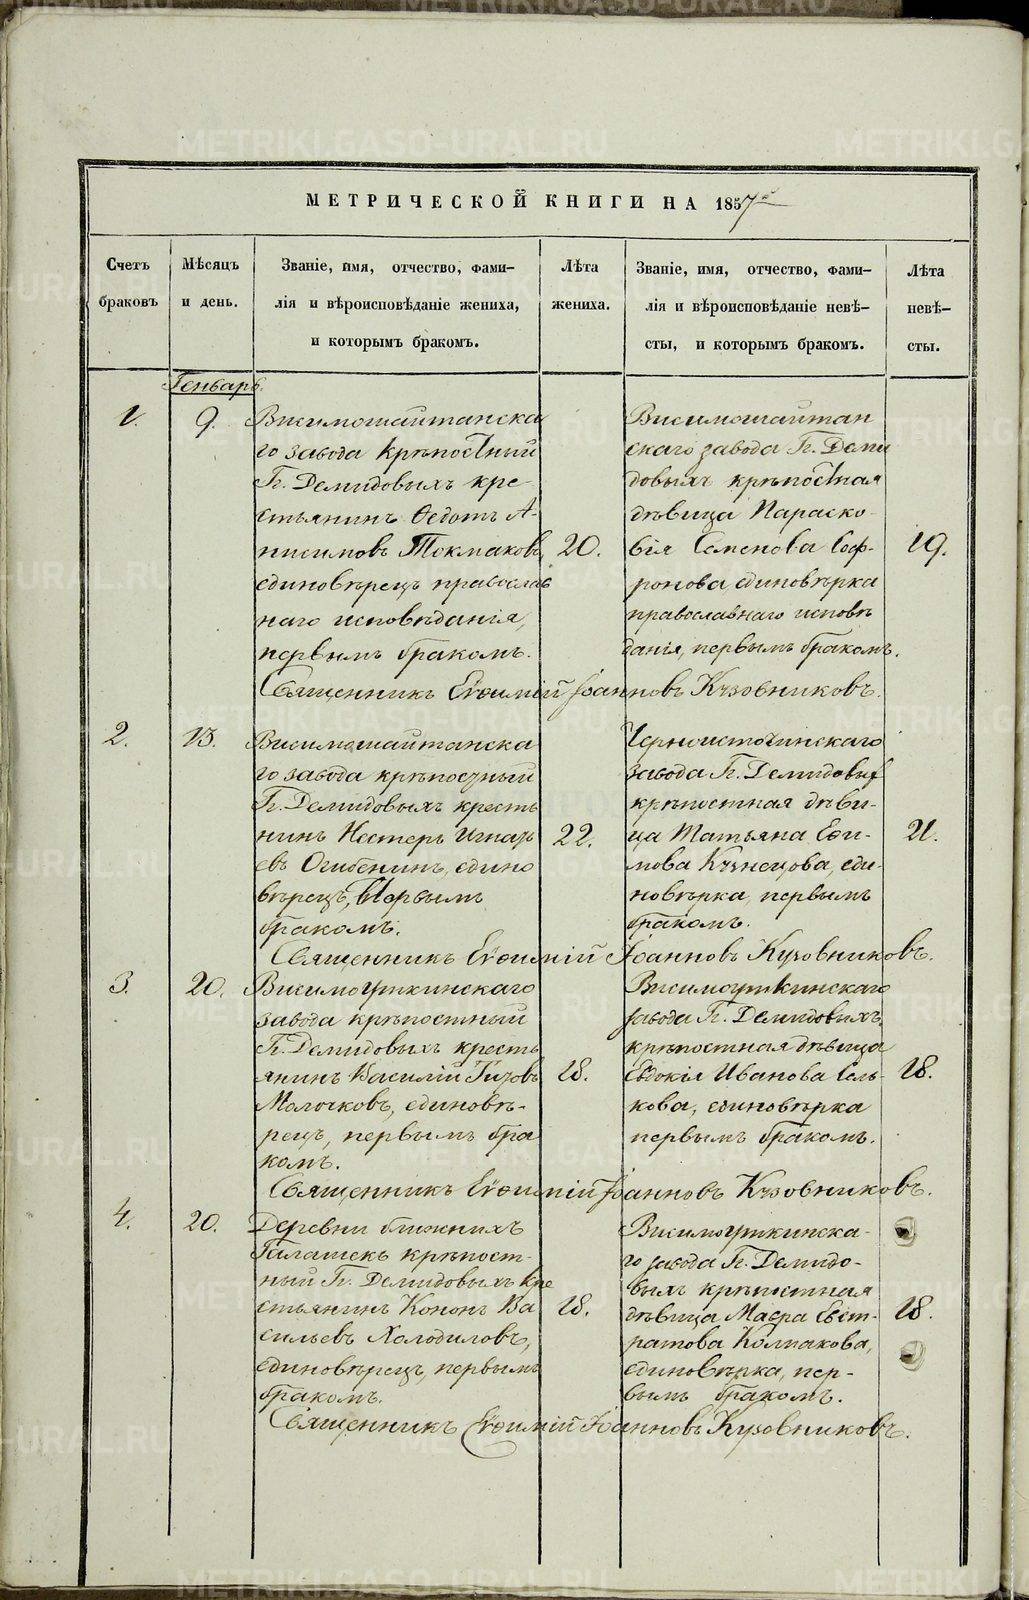 МЕТРИЧЕСКОЙ КНИГИ НА 1857й
Счетъ
браковъ
Мѣсяцъ
и день.
Званіе, имя, отчество, фами-
лія и вѣроисповѣданіе жениха,
и которымъ бракомъ.
Лѣта
жениха.
Званіе, имя, отчество, фами-
лія и вѣроисповѣданіе невѣ-
сты, и которымъ бракомъ.
Лѣта
невѣ-
сты.
Генварь.
1.
9.
Висимошайтанска
го завода крѣпостный
Гг. Демидовыхъ кре-
стьянинъ Ѳедотъ А-
нисимовъ Токмаковъ,
единовѣрецъ православ
наго исповѣданія,
первымъ бракомъ.
20.
Висимошайтан
скаго завода Гг. Деми
довыхъ крѣпостная
дѣвица Параско-
вія Семенова Соф-
ронова, единовѣрка
православнаго исповѣ
данія, первымъ бракомъ.
19.
Священникъ Еѵѳимій Іоанновъ Кузовниковъ.
2.
13.
Висимошайтанска
го завода крѣпосный
Гг. Демидовыхъ кресть
нинъ Нестеръ Игнать
евъ Огибенинъ, едино
вѣрецъ, первымъ
бракомъ.
22.
Черноисточинскаго
завода Гг. Демидовых
крѣпостная дѣви-
ца Татьяна Ефи-
мова Кузнецова, еди-
новѣрка, первымъ
бракомъ.
21.
Священникъ Еѵѳимій Іоанновъ Кузовниковъ.
3.
20.
Висимоуткинскаго
завода крѣпостный
Гг. Демидовыхъ кресть
янинъ Василій Титовъ
Молочковъ, единовѣ-
рецъ, первымъ бра
комъ.
18.
Висимоуткинскаго
завода Гг. Демидовыхъ,
крѣпостная дѣвица
Евдокія Иванова Сель-
кова, единовѣрка
первымъ бракомъ.
18.
Священникъ Еѵѳимій Іоанновъ Кузовниковъ.
4.
20.
Деревни ближнихъ
Галашекъ крѣпост-
ный Гг. Демидовыхъ кре
стьянинъ Кононъ Ва
сильевъ Холодиловъ,
единовѣрецъ, первымъ
бракомъ.
18.
Висимоуткинска-
го завода Гг. Демидо-
выхъ крѣпостная
дѣвица Мавра Евст-
ратова Колпакова,
единовѣрка, пер-
вымъ бракомъ.
18.
Священникъ Еѵѳимій Іоанновъ Кузовниковъ.
METRIKI.GASO-URAL.RU